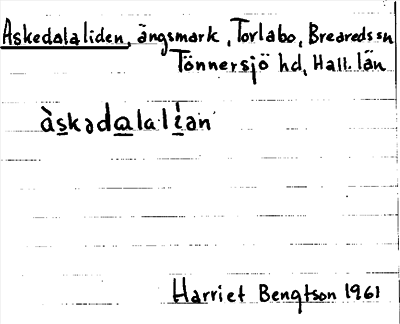 Askedalaliden, ängsmark, Torlabo, Breareds sn
Tönnersjö hd, Hall. län
àskadalalían
Harriet Bengtson 1961